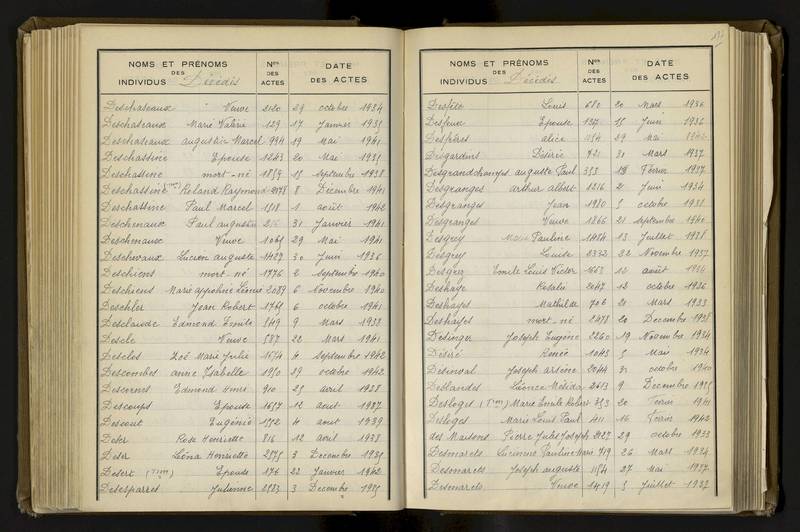 NOMS ET PRÉNOMS
DES
INDIVIDUS Décédés
Nos
DES
ACTES
DATE
DES ACTES
Deschateaux Veuve 2120 29 octobre 1934
Deschateaux Marie Valérie 129 17 Janvier 1935
Deschateaux augustin Marcel 994 19 Mai 1941
Deschatine Epouse 1243 20 Mai 1935
Deschatine mort-né 1859 15 Septembre 1938
Deschatine Roland Raymond 2078 8 Décembre 1941
Deschatine Paul Marcel 1518 1 août 1942
Deschenaux Paul auguste 31 Janvier 1941
Deschenaux Veuve 1065 29 Mai 1941
Deschevaux Lucien auguste 1429 30 Juin 1936
Deschiens mort-né 1776 2 Septembre 1940
Deschiens Marie 2089 6 Novembre 1940
Deschler Jean Robert 1765 6 octobre 1941
Desclaude Edmond Emile 849 9 Mars 1938
Descle Veuve 587 22 Mars 1941
Descles Zoé Marie Julie 1674 4 Septembre 1942
Descombes anne Isabelle 1950 29 octobre 1942
Descornes Edmond Henri 910 25 avril 1928
Descoups Epouse 1657 12 août 1937
Descout Eugénie 1552 4 août 1939
Deser Rose Henriette 816 12 avril 1938
Deser Léona Henriette 2575 3 Décembre 1935
Desert Epouse 176 22 Janvier 1942
Desesparres Julienne 2583 3 Décembre 1935
NOMS ET PRÉNOMS
DES
INDIVIDUS Décédés
Nos
DES
ACTES
DATE
DES ACTES
Louis 680 20 Mars 1936
Desfeux Epouse 137 15 Juin 1936
alice 1154 29 Mai
Desgardins Désiré 721 31 Mars 1937
Desgrandchamps auguste Paul 353 18 Février 1937
Desgranges arthur albert 1216 2 Juin 1934
Desgranges Jean 1980 5 octobre 1938
Desgranges Veuve 1866 21 Septembre 1940
Desgrey Marie Pauline 1484 13 Juillet 1938
Desgrey Louise 2332 22 Novembre 1937
Desgrez Emile Louis Victor 1667 12 août
Deshaye Rosalie 2047 12 octobre 1936
Deshayes Mathilde 706 21 Mars 1933
Deshayes mort-né 2478 20 Décembre 1938
Desinger Joseph Eugène 2260 19 Novembre 1934
Désiré Renée 1043 5 Mai 1934
Desinval Joseph arsène 2044 31 octobre 1940
Deslandes Léonce 2613 9 Décembre 1935
Desloges Marie Emile Robert 353 20 Février 1941
Desloges Marie Louis Paul 411 16 Février 1942
des Maisons Pierre Jules Joseph 2127 29 octobre 1933
Desmarets Lucienne Pauline Marie 719 26 Mars 1934
Desmarets Joseph auguste 1154 27 Mai 1937
Desmarets Veuve 1419 5 Juillet 1937